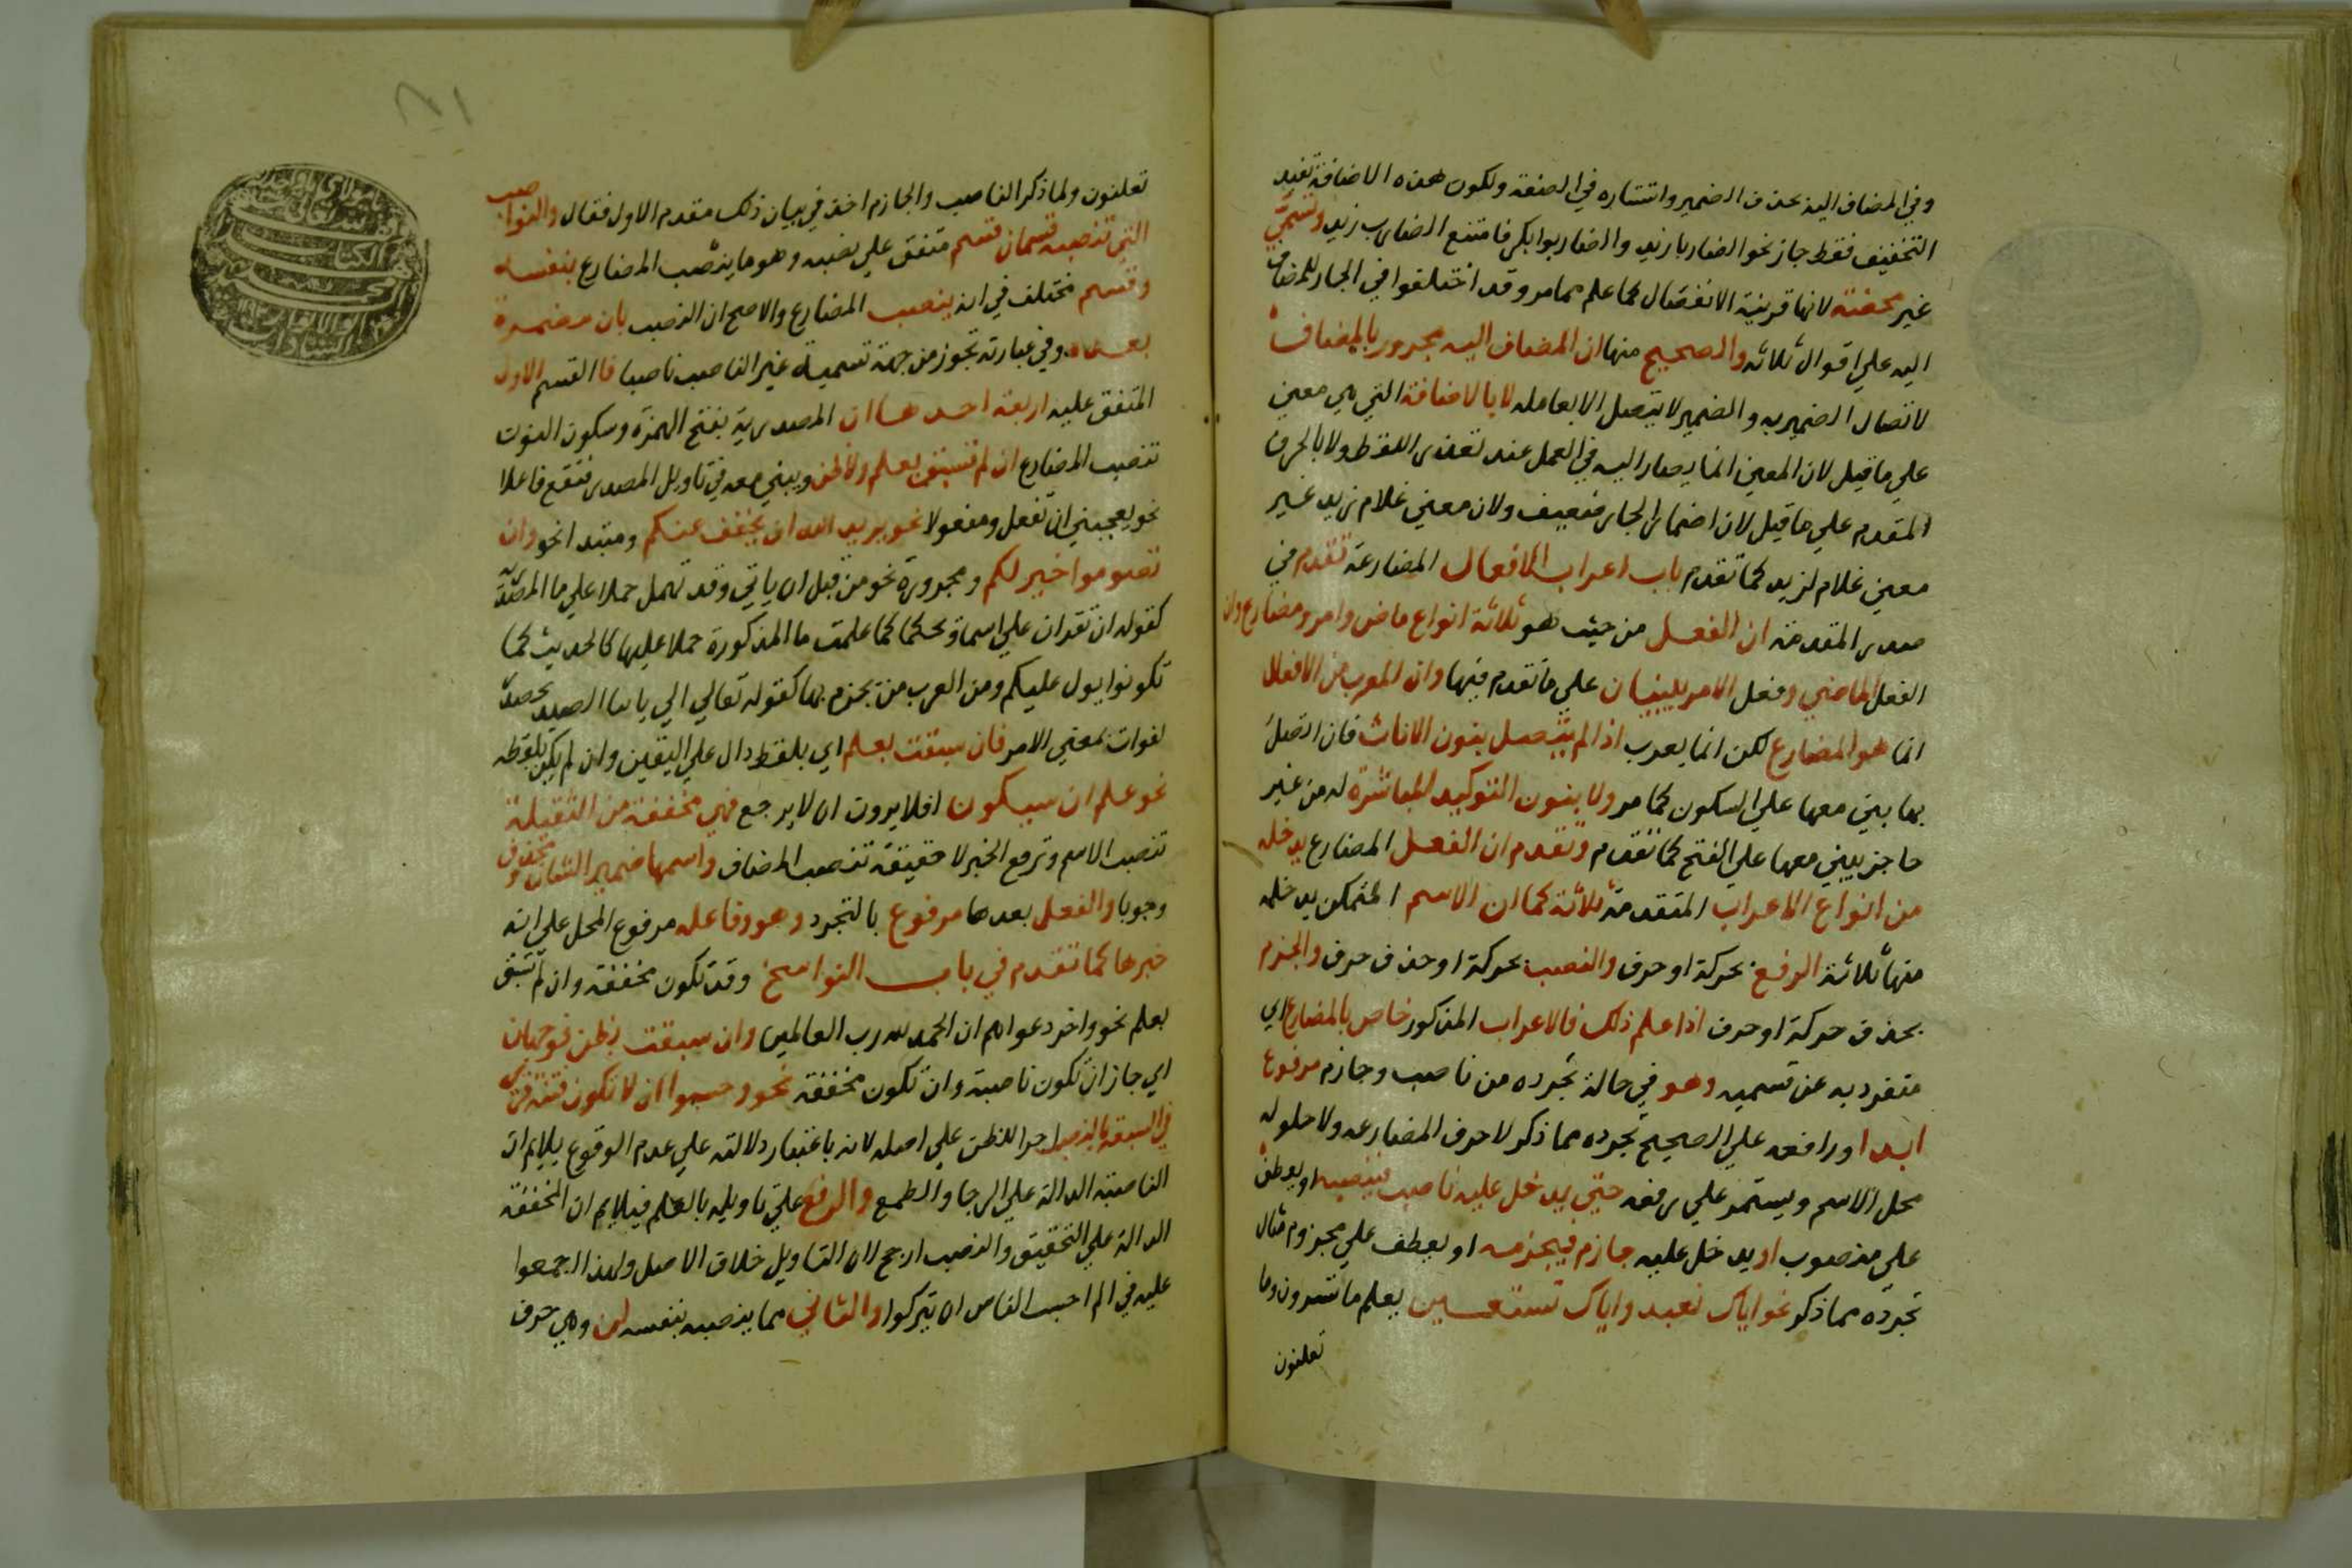 وفي المضاف اليه بحذف الضمير واستتاره في الصفة ولكون هذه الاضافة تفيد
التخفيف فقط جاز نحو الضاربا زيد والضاربوا بكر فامتنع الضارب زيد وتسمي
غير محضة لانها قرينة الانفصال كما علم مما مر وقد اختلفوا في الجار للمضاف
اليه علي اقوال ثلاثة والصحيح منها ان المضاف اليه مجرور بالمضاف
لاتصال الضمير به والضمير لا يتصل الا بعامله لا بالاضافة التي هي معني
علي ما قيل لان المعني انما يصار اليه في العمل عند تعذر اللفظ ولا بالحرف
المقدم علي ما قيل لان اضمار الجار ضعيف ولان معني غلام زيد غير
معني غلام لزيد كما تقدم باب اعراب الافعال المضارعة تقدم في
صدر المقدمة ان الفعل من حيث هو ثلاثة انواع ماض وامر ومضارع وان
الفعل الماضي وفعل الامر مبنيان علي ما تقدم فيها وان المعرب من الافعال
انما هو المضارع لكن انما يعرب اذا لم يتصل بنون الاناث فان اتصل
بها بني معها علي السكون كما مر ولا بنون التوكيد المباشرة له من غير
حاجز يبني معها علي الفتح كما تقدم وتقدم ان الفعل المضارع يدخله
من انواع الاعراب المتقدمة ثلاثة كما ان الاسم المتمكن يدخله
منها ثلاثة الرفع بحركة او حرف والنصب بحركة او حذف حرف والجزم
بحذف حركة او حرف اذا علم ذلك فالاعراب المذكور خاص بالمضارع اي
متفرد به عن قسميه وهو في حالة تجرده من ناصب وجازم مرفوع
ابدا ورافعه علي الصحيح تجرده مما ذكر لا حرف المضارعه ولا حلوله
محل الاسم ويستمر علي رفعه حتي يدخل عليه ناصب فينصبه او يعطف
علي منصوب او يدخل عليه جازم فيجزمه او يعطف علي مجزوم مثال
تجرده مما ذكر نحو اياك نعبد واياك نستعين يعلم ما تسرون وما
تعلنون
تعلنون ولما ذكر الناصب والجازم اخذ في بيان ذلك مقدم الاول فقال والنواصب
التي تنصبه قسمان قسم متفق علي نصبه وهو ما ينصب المضارع بنفسه
وقسم مختلف في انه ينصب المضارع والاصح ان النصب بان مضمرة
بعده وفي عبارته تجوز من جهة تسمية غير الناصب ناصبا فا القسم الاول
المتفق عليه اربعة احدها ان المصدرية بفتح الهمزة وسكون النون
تنصب المضارع ان لم تسبق بعلم ولا ظن ويبني معه في تاويل المصدر فتقع فاعلا
نحو يعجبني ان تفعل ومفعولا نحو يريد الله ان يخفف عنكم ومبتدا نحو وان
تصوموا خير لكم ومجرورة نحو من قبل ان ياتي وقد تهمل حملا علي ما المصدرية
كقوله ان تقران علي اسما ويحكما كما علمت ما المذكورة حملا عليها كالحديث كما
تكونوا يول عليكم ومن العرب من يجزم بها كقوله تعالي الي ياتنا الصيد
لفوات بمعني الامر فان سبقت بعلم اي بلفظ دال علي اليقين وان لم يكن بلفظه
نحو علم ان سيكون افلا يرون ان لا يرجع فهي مخففة من الثقيلة
تنصب الاسم وترفع الخبر لا حقيقة تنصب المضاف واسمها ضمير الشان محذوف
وجوبا والفعل بعدها مرفوع بالتجرد وهو وفاعله مرفوع المحل علي انه
خبرها كما تقدم في باب النواسخ وقد تكون مخففة وان لم تسبق
بعلم نحو واخر دعواهم ان الحمد لله رب العالمين وان سبقت بظن فوجهان
اي جاز ان تكون ناصبة وان تكون مخففة نحو وحسبوا ان لا تكون فتنة قري
في السبعة بالنصب اجرا للظن علي اصله لانه باعتبار دلالته علي عدم الوقوع يلايم ان
الناصبة الدالة علي الرجا والطمع والرفع علي تاويله بالعلم فيلايم ان المخففة
الدالة علي التحقيق والنصب ارجح لان التاويل خلاف الاصل ولهذا اجمعوا
عليه في الم احسب الناس ان يتركوا والثاني مما ينصبه بنفسه لن وهي حرف